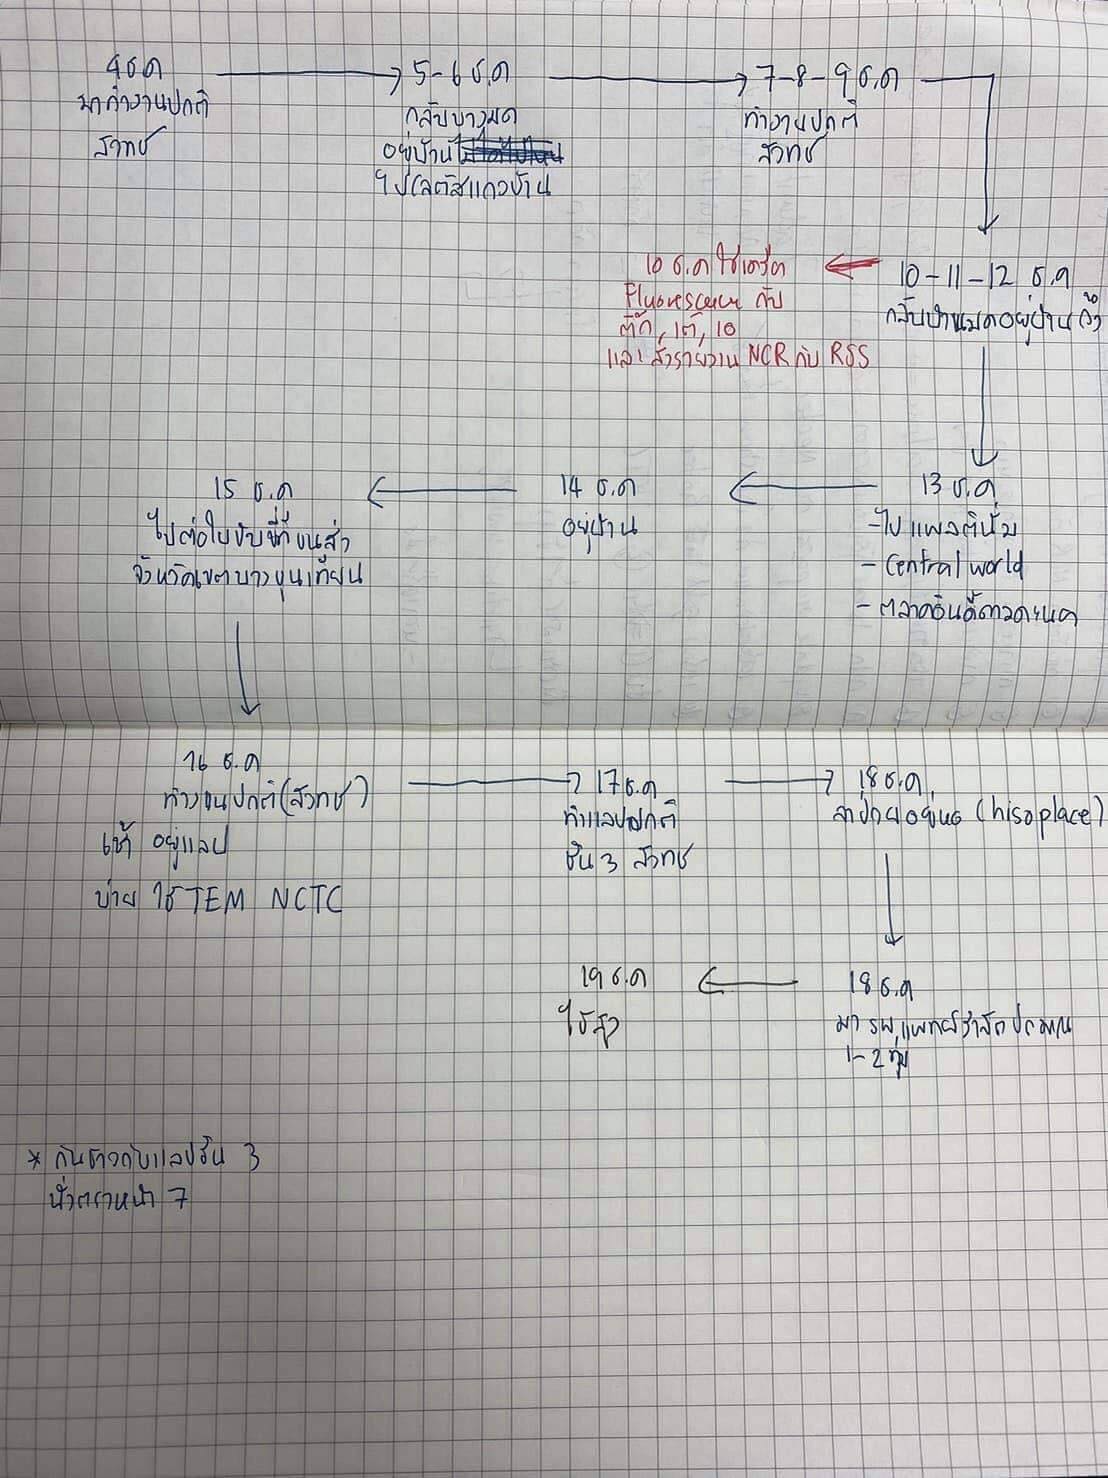 4 ธ.ค
มาทำงานปกติ
สวทช
5-6 ธ.ค
กลับบางมด
อยู่บาน
ไปโลตัสแถวบ้าน
7-8-9 ธ.ค
ทำงานปกติ
สวทช
10-11-12 ธ.ค
กลับบางมดอยู่บาน
10 ธ.ค ใช้เครื่อง
Fluorescence กับ
ตึก
และส่งรายงาน NCR กับ RSS
13 ธ.ค
-ไปแพลตินั่ม
- Central world
- ตลาดอินดี้ดาวคะนอง
14 ธ.ค
อยู่บ้าน
15 ธ.ค
ไปต่อใบขับขี่ที่ขนส่ง
จังหวัดเขตบางขุนเทียน
16 ธ.ค
ทำงานปกติ(สวทช)
เช้า อยู่แลป
บ่าย ใช้ TEM NCTC
17 ธ.ค
ทำแลปปกติ
ชั้น 3 สวทช
18 ธ.ค.
ลาป่วยอยู่หอ (hisoplace)
18 ธ.ค
มา รพ.แพทย์รังสิตประมาณ
1-2 ทุ่ม
19 ธ.ค
* กินข้าวกับแลปชั้น 3
7